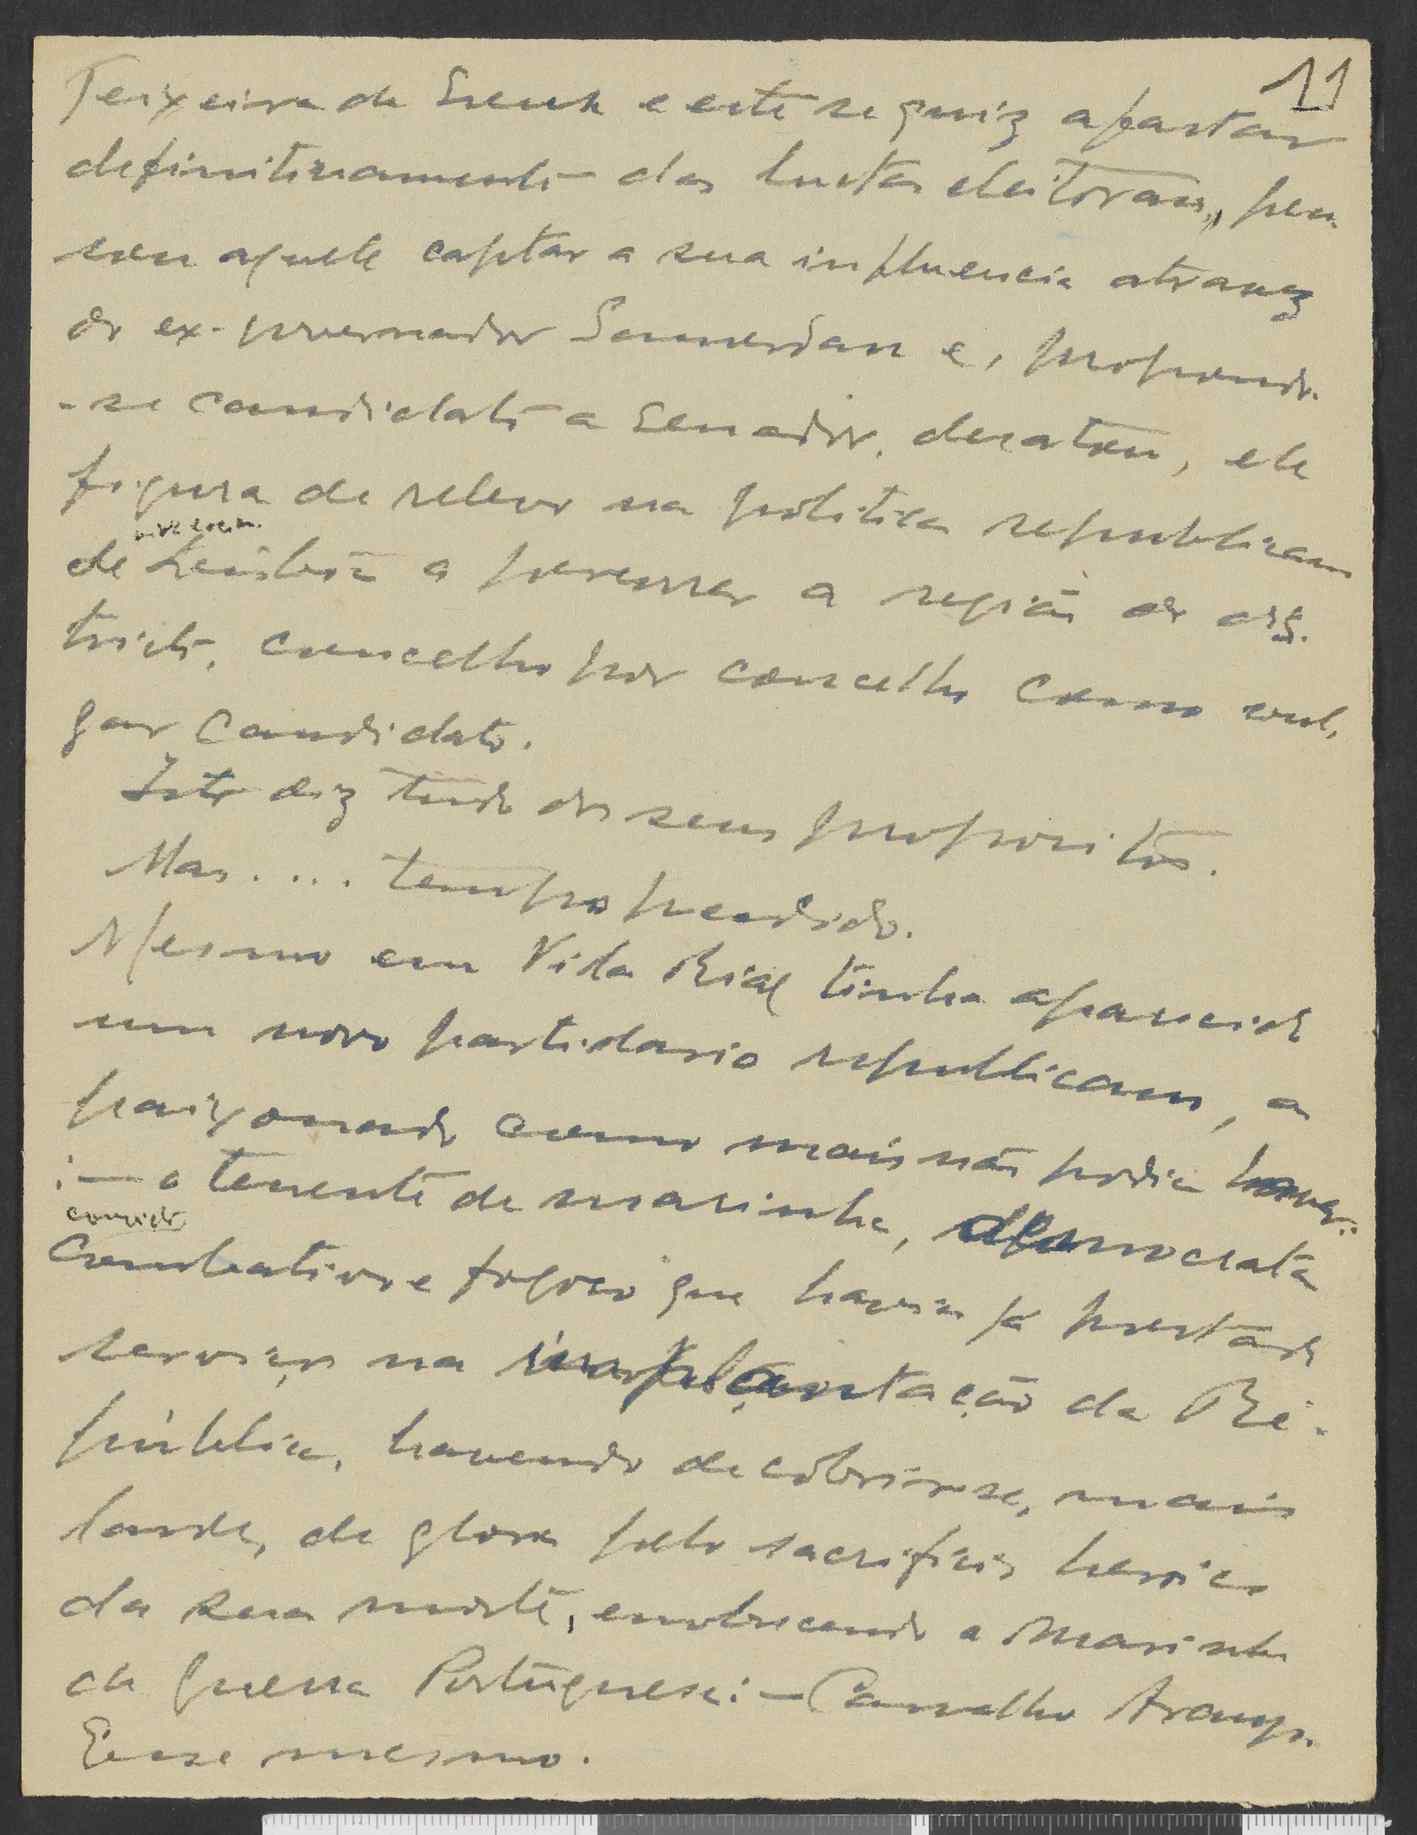 11
Teixeira de Sousa e este se quiz afastar
definitivamente das luctas eleitorais, pen-
sou aquele captar a sua influencia atravez
do ex-governador e, propondo-
-se candidato a Senador, desatou, ele
figura de relevo na politica republicana
de Lisboa a percorrer a região do dis-
tricto, concelho por concelho como vul-
gar candidato.
Isto diz tudo dos seus propositos.
Mas.... tempo perdido.
Mesmo em Vila Rial tinha aparecido
um novo partidario republicano, a
paixonado como mais não podia haver:
:— o tenente de marinha, democrata
convicto
combativo e fogoso que havia já prestado
serviços na implantação da Ré-
pública, havendo de cobrir-se, mais
tarde, de gloria pelo sacrificio heroico
da sua morte, enobrecendo a Marinha
de guerra Portuguesa:— Carvalho Araujo.
Esse mesmo.